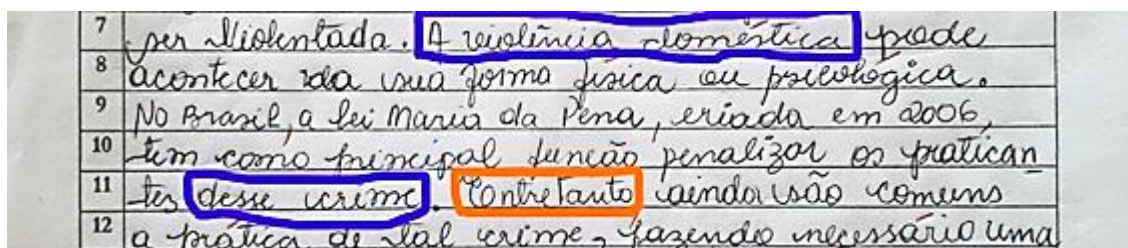 7 ser Violentada. A violência doméstica pode
8 acontecer da sua forma física ou psicológica.
9 No Brasil, a lei Maria da Pena, criada em 2006,
10 tem como principal função penalizar os pratican
11 tes desse crime. Entretanto ainda são comuns
12 a prática de tal crime, fazendo necessário uma